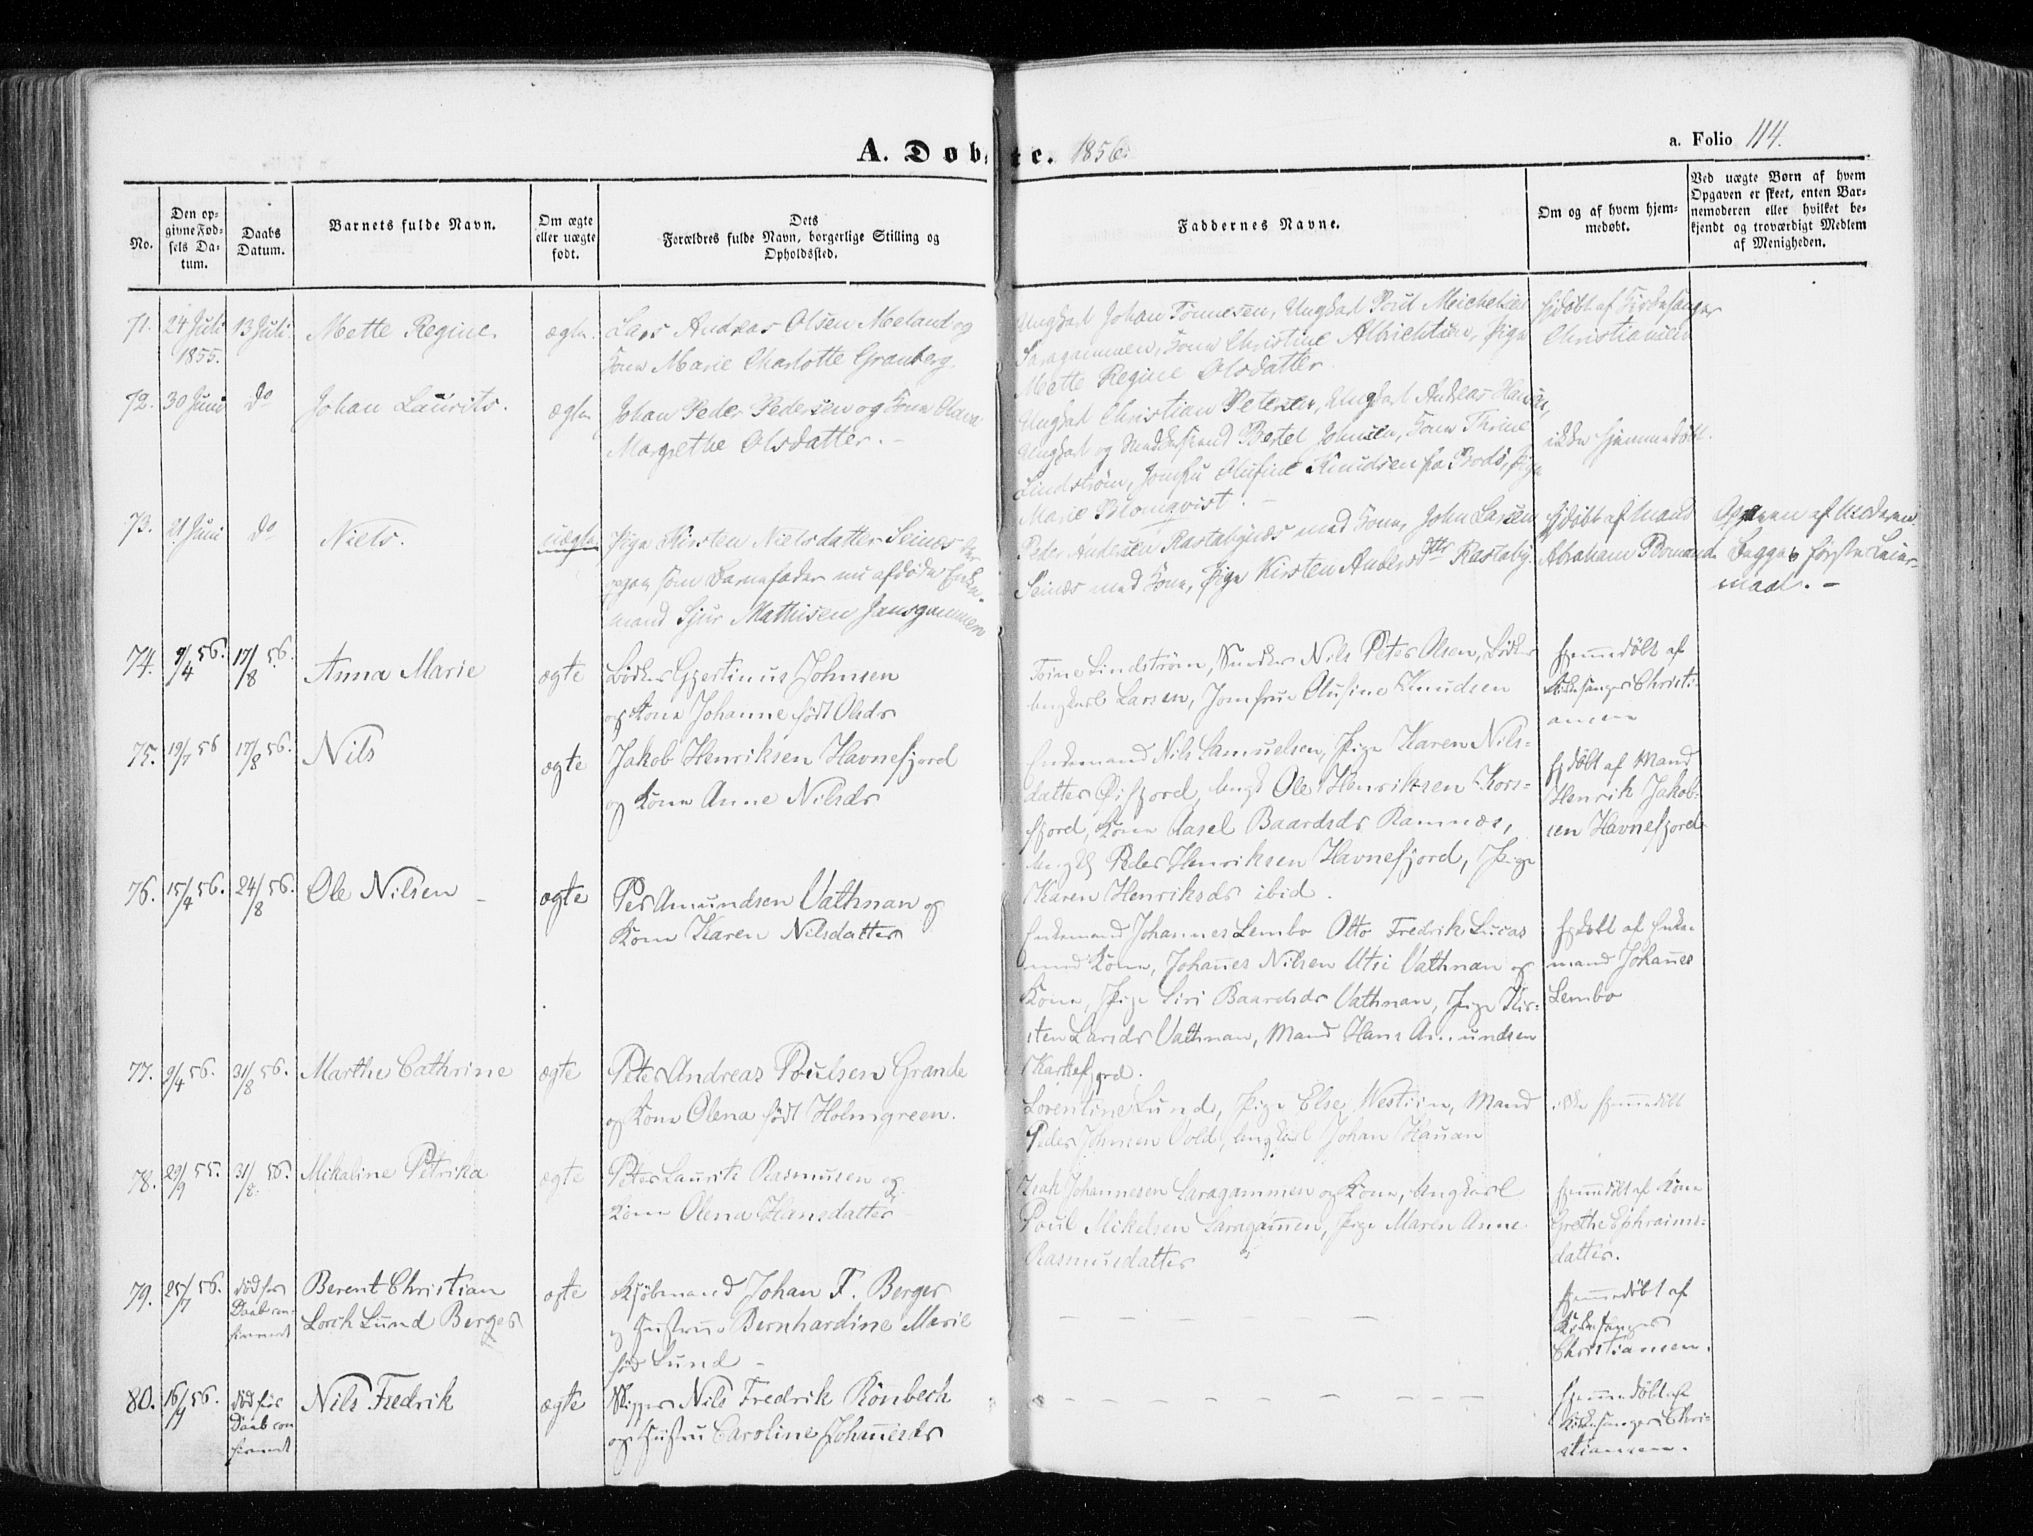 A. Døbte. 1856.
a. Folio 114.
No.
Den opgivne Fødsels Datum.
Daabs Datum.
Barnets fulde Navn.
Om ægte eller uægte født.
Dets Forældres fulde Navn, borgerlige Stilling og Opholdssted.
Faddernes Navne.
Om og af hvem hjemmedøbt.
Ved uægte Børn af hvem Opgaven er skeet, enten Barnemoderen eller hvilket bekjendt og troværdigt Medlem af Menigheden.
71. 24 Juli 1855. 13 Juli Mette Regine. ægte.
Lars Andreas Olsen Meland og
Kone Marie Charlotte Granberg.
Ungkarl Johan Tönnesen, Ungkarl Poul Michelsen
Saragammen, Kone Christine Albrichtsen, Pige
Mette Regine Olsdatter.
hjdöbt af Kirkesanger
Christiansen
72. 30 Juni do Johan Laurits. ægte
Johan Peder Pedersen og Kone
Margrethe Olsdatter.
Ungkarl Christian Petersen, Ungkarl Andreas Hansen,
Ungkarl og Bertel Johnsen, Kone Trine
Lindström, Jomfru Olufine Knudsen fra Bodö, Pige
Marie Blomqvist.
ikke hjemmedöbt.
73. 21 Juni do Niels. uægte
Pige Kirsten Nielsdatter Seinæs der
opgav som Barnefader nu afdöde Enke-
mand Sjur Mathisen Jansgammen
Peder Andersen Rastabynæs med Kone, John Larsen
Seinæs med Kone, Pige Kirsten Andersdtr Rastaby.
hjdöbt af Mand
Abraham
Opgaven af Moderen.
Begges förste Leier-
maal.
74. 9/4 56. 17/8 56. Anna Marie ægte
Bödker Gjertinus Johnsen
og Kone Johanne född Olsdr
Trine Lindström, Snedker Nils Peter Olsen, Bödker
Ungkarl Larsen, Jomfrue Olufine Knudsen
hjemmedöbt af
Kirkesanger Christi-
ansen
75. 19/7 56 17/8 56. Nils ægte
Jakob Henriksen Havnefjord
og Kone Anne Nilsdr
Enkemand Nils Samuelsen, Pige Karen Nils-
datter Öifjord, Ungk Ole Henriksen Kors-
fjord, Kone Aasel Baardsdr Ramnæs,
Ungk Peder Henriksen Havnefjord, Pige
Karen Henriksdr ibid.
hjdöbt af Mand
Henrik Jakob-
sen Havnefjord
76. 15/4 56. 24/8 56. Ole Nilsen ægte
Per Amundsen Vathnan og
Kone Karen Nilsdatter
Enkemand Johannes Lembo Otto Fredrik Lucas
med Kone, Johannes Nilsen Utsi Vathnan og
Kone, Pige Siri Baardsdr Vathnan, Pige Kir-
sten Larsdr Vathnan, Mand Hans Amundsen
Karkefjord.
hjdöbt af Enke-
mand Johannes
Lembo
77. 9/4 56. 31/8 56. Marthe Cathrine ægte
Peter Andreas Poulsen Grande
og Kone Olena född Holmgreen.
Lorentine Lund, Pige Else Westeien, Mand
Peder Johnsen Vold, Ungkarl Johan Hauan
ikke hjemmedöbt
78. 29/9 55. 31/8 56. Mikaline Petrika ægte
Peter Laurits Rasmusen og
Kone Olena Hansdatter
Isak Johannesen Saragammen og Kone, Ungkarl
Poul Mikelsen Saragammen, Pige Maren Anne
Rasmusdatter
hjemmedöbt af Kone
Grethe Ephraims-
datter.
79. 25/7 56. död för Daab con- firmeredt Berent Christian
Lorch Lund Berger ægte
Kjöbmand Johan F. Berger
og Hustrue Bernhardine Marie
föd Lund
hjemmedöbt af
Kirkesanger
Christiansen.
80. 16/7 56. död för Daab con firmeredt Nils Fredrik ægte
Skipper Nils Fredrik Rönbech
og Hustru Caroline Johannesdr
hjemmedöbt af
Kirkesanger Chri-
stiansen.